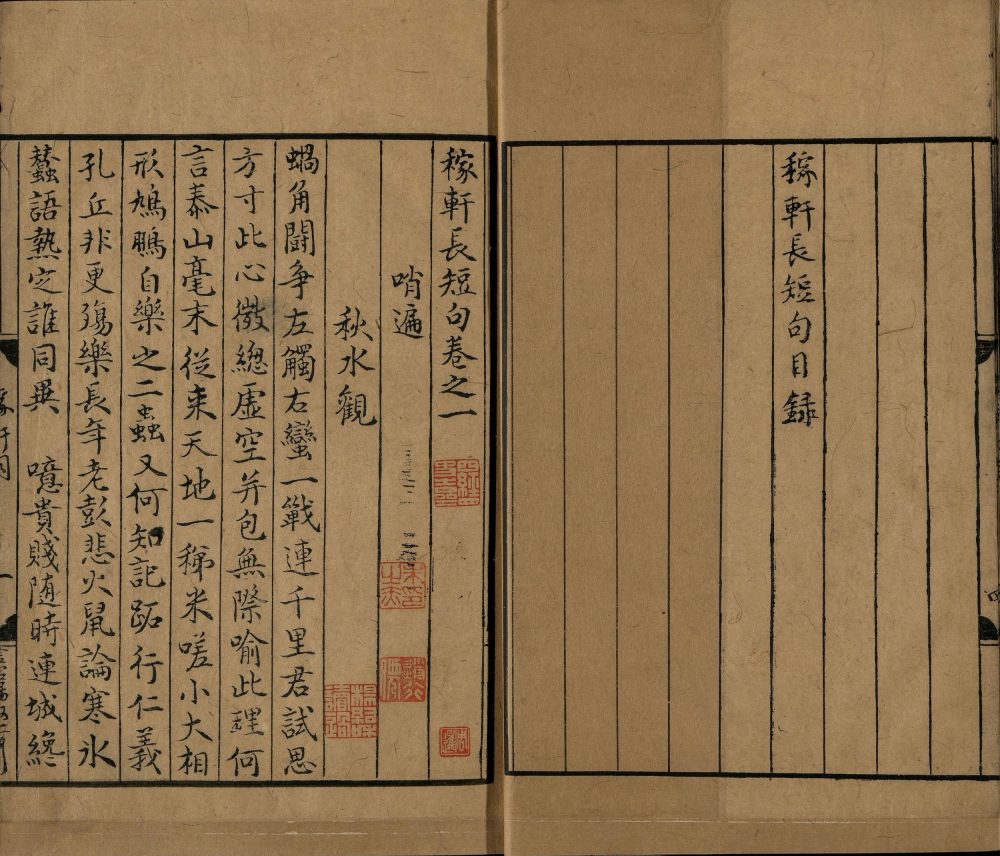 稼軒長短句目録
稼軒長短句卷之一
哨遍
秋水觀
蝸角鬪争左觸右蠻一戰連千里君試思
方寸此心微總虛空并包無際喻此理何
言泰山毫末從来天地一稊米嗟小大相
形鳩鵬自樂之二蟲又何知記跖行仁義
孔丘非更殤樂長年老彭悲火鼠論寒氷
蠶語熱定誰同異 噫貴賤随時連城纔